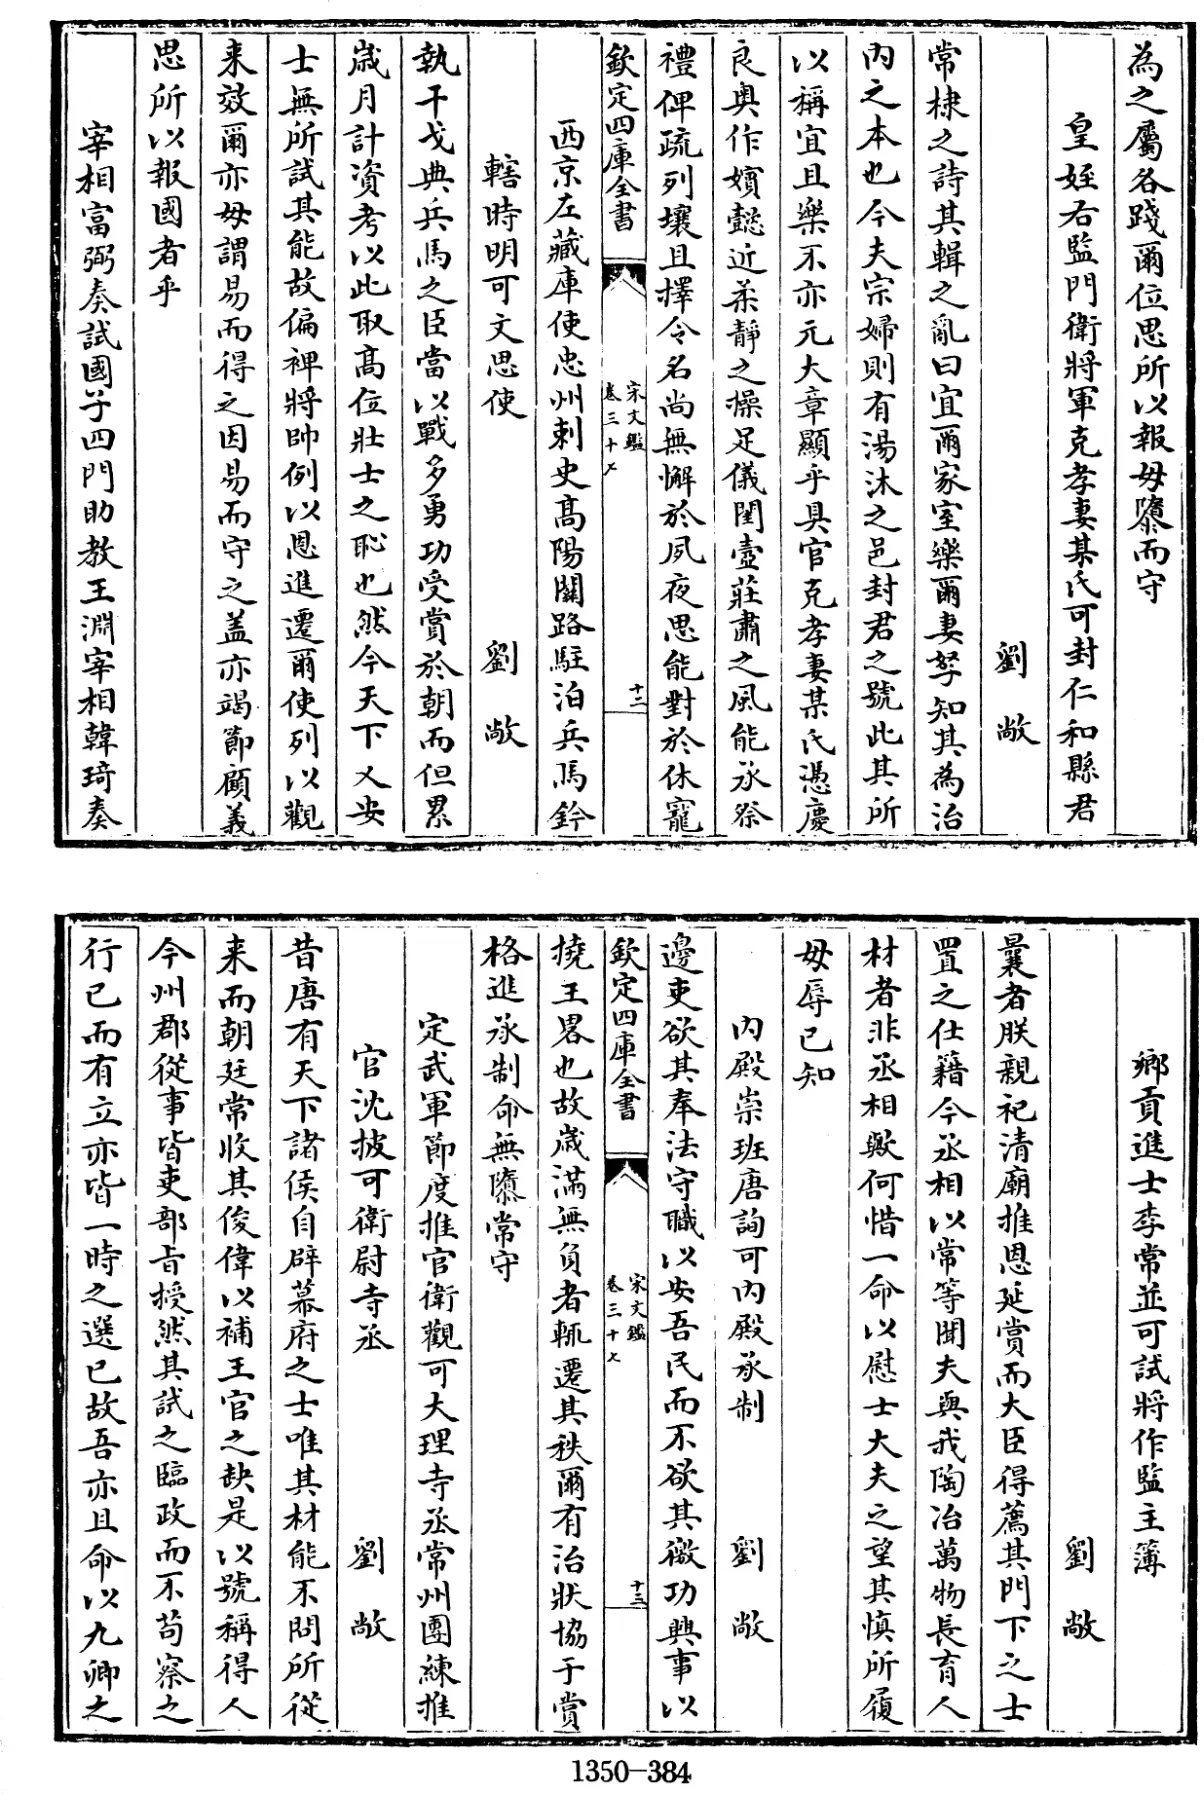 為之屬各踐爾位思所以報毋隳而守
皇姪右監門衛將軍克孝妻某氏可封仁和縣君
劉敞
常棣之詩其輯之亂曰宜爾家室樂爾妻孥知其為治
内之本也今夫宗婦則有湯沐之邑封君之號此其所
以稱宜且樂不亦元大章顯乎具官克孝妻某氏憑慶
良奥作嬪懿近柔靜之操足儀閨壼莊肅之風能承祭
禮俾疏列壤且擇令名尚無懈於夙夜思能對於休寵
欽定四庫全書
宋文鑑
卷三十七
十二
西京左藏庫使忠州刺史髙陽關路駐泊兵馬鈐
轄時明可文思使
劉敞
執干戈典兵馬之臣當以戰多勇功受賞於朝而但累
歳月計資考以此取髙位壯士之恥也然今天下乂安
士無所試其能故偏裨將帥例以恩進遷爾使列以觀
来效爾亦毋謂易而得之因易而守之盖亦竭節顧義
思所以報國者乎
宰相富弼奏試國子四門助教王淵宰相韓琦奏
鄉貢進士李常並可試將作監主簿
劉敞
曩者朕親祀清廟推恩延賞而大臣得薦其門下之士
置之仕籍今丞相以常等聞夫與我陶冶萬物長育人
材者非丞相歟何惜一命以慰士大夫之望其慎所履
毋辱已知
内殿崇班唐詢可内殿承制
劉敞
邊吏欲其奉法守職以安吾民而不欲其徼功興事以
欽定四庫全書
宋文鑑
卷三十七
十三
撓王畧也故歳滿無負者輒遷其秩爾有治狀協于賞
格進承制命無隳常守
定武軍節度推官衛觀可大理寺丞常州團練推
官沈披可衛尉寺丞
劉敞
昔唐有天下諸侯自辟幕府之士唯其材能不問所從
来而朝廷常收其俊偉以補王官之缺是以號稱得人
今州郡從事皆吏部㫖授然其試之臨政而不苟察之
行已而有立亦皆一時之選已故吾亦且命以九卿之
1350-384